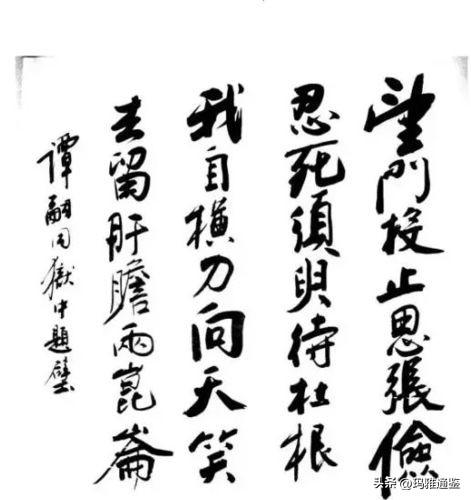 望門投止思張儉
忍死須臾待杜根
我自橫刀向天笑
去留肝膽兩崑崙
譚嗣同獄中題壁
头条 @玛雅通鉴